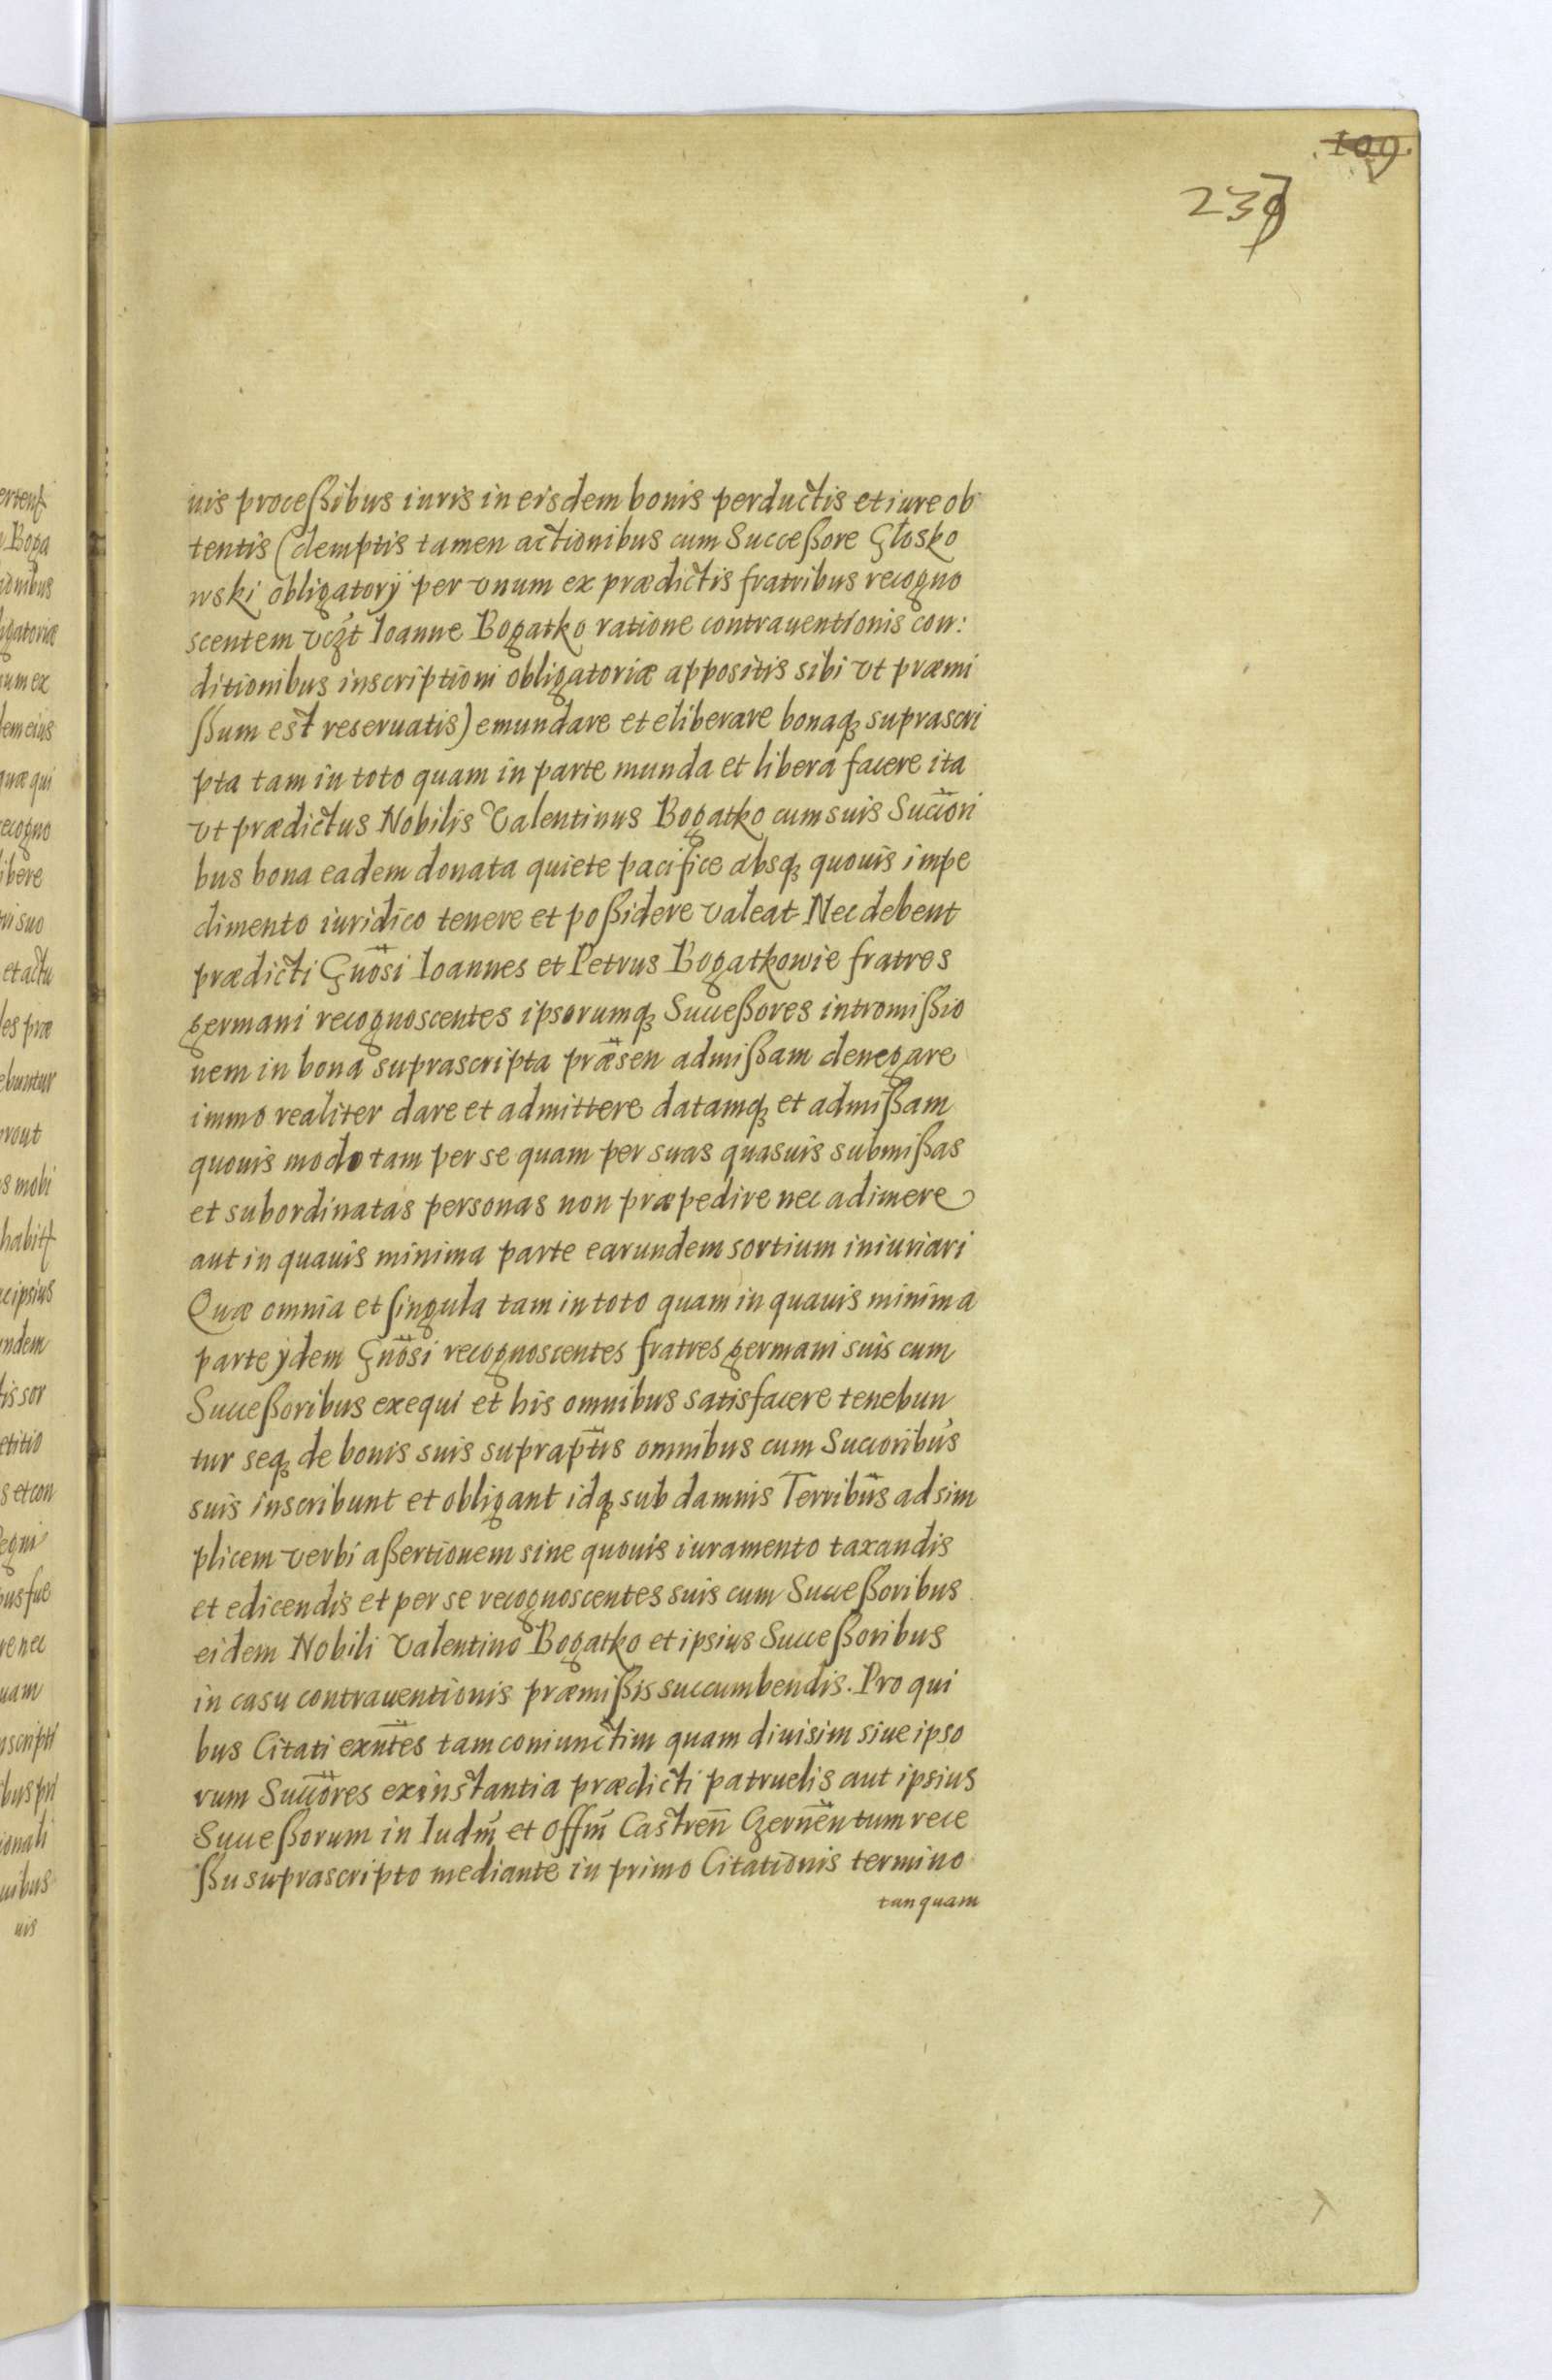 109.
239
uis proceßibus iuris in eisdem bonis perductis et iure ob
tentis (demptis tamen actionibus cum Succeßore Głosko
wski obligatorÿ per vnum ex prædictis fratribus recogno
scentem vczt Ioanne Bogatko ratione contrauentionis con:
ditionibus inscriptioni obligatoriæ appositis sibi vt præmi
ßum est reseruatis) emundare et eliberare bonaqꝫ suprascri
pta tam in toto quam in parte munda et libera facere ita
vt prædictus Nobilis Valentinus Bogatko cum suis Succ̃ori
bus bona eadem donata quiete pacifice absqꝫ quouis impe
dimento iuridico tenere et poßidere valeat Nec debent
prædicti Gñosi Ioannes et Petrus Bogatkowie fratres
germani recognoscentes ipsorumqꝫ Succeßores intromißio
nem in bona suprascripta præsen admißam denegare
immo realiter dare et admittere datamqꝫ et admißam
quouis modo tam per se quam per suas quasuis submißas
et subordinatas personas non præpedire nec adimere
aut in quauis minima parte earundem sortium iniuriari
Quæ omnia et singula tam in toto quam in quauis minima
parte ÿdem Gñosi recognoscentes fratres germani suis cum
Succeßoribus exequi et his omnibus satisfacere tenebun
tur seqꝫ de bonis suis suprap̃tis omnibus cum Succoribus
suis inscribunt et obligant idqꝫ sub damnis Terribus̃ ad sim
plicem verbi aßertionem sine quouis iuramento taxandis
et edicendis et per se recognoscentes suis cum Succeßoribus
eidem Nobili Valentino Bogatko et ipsius Succeßoribus
in casu contrauentionis præmißis succumbendis. Pro qui
bus Citati exñtes tam coniunctim quam diuisim siue ipso
rum Succ̃ores ex instantia prædicti patruelis aut ipsius
Succeßorum in Iudm̃ et Offm̃ Castren̄ Czerneñ tum rece
ßu suprascripto mediante in primo Citationis termino
tanquam